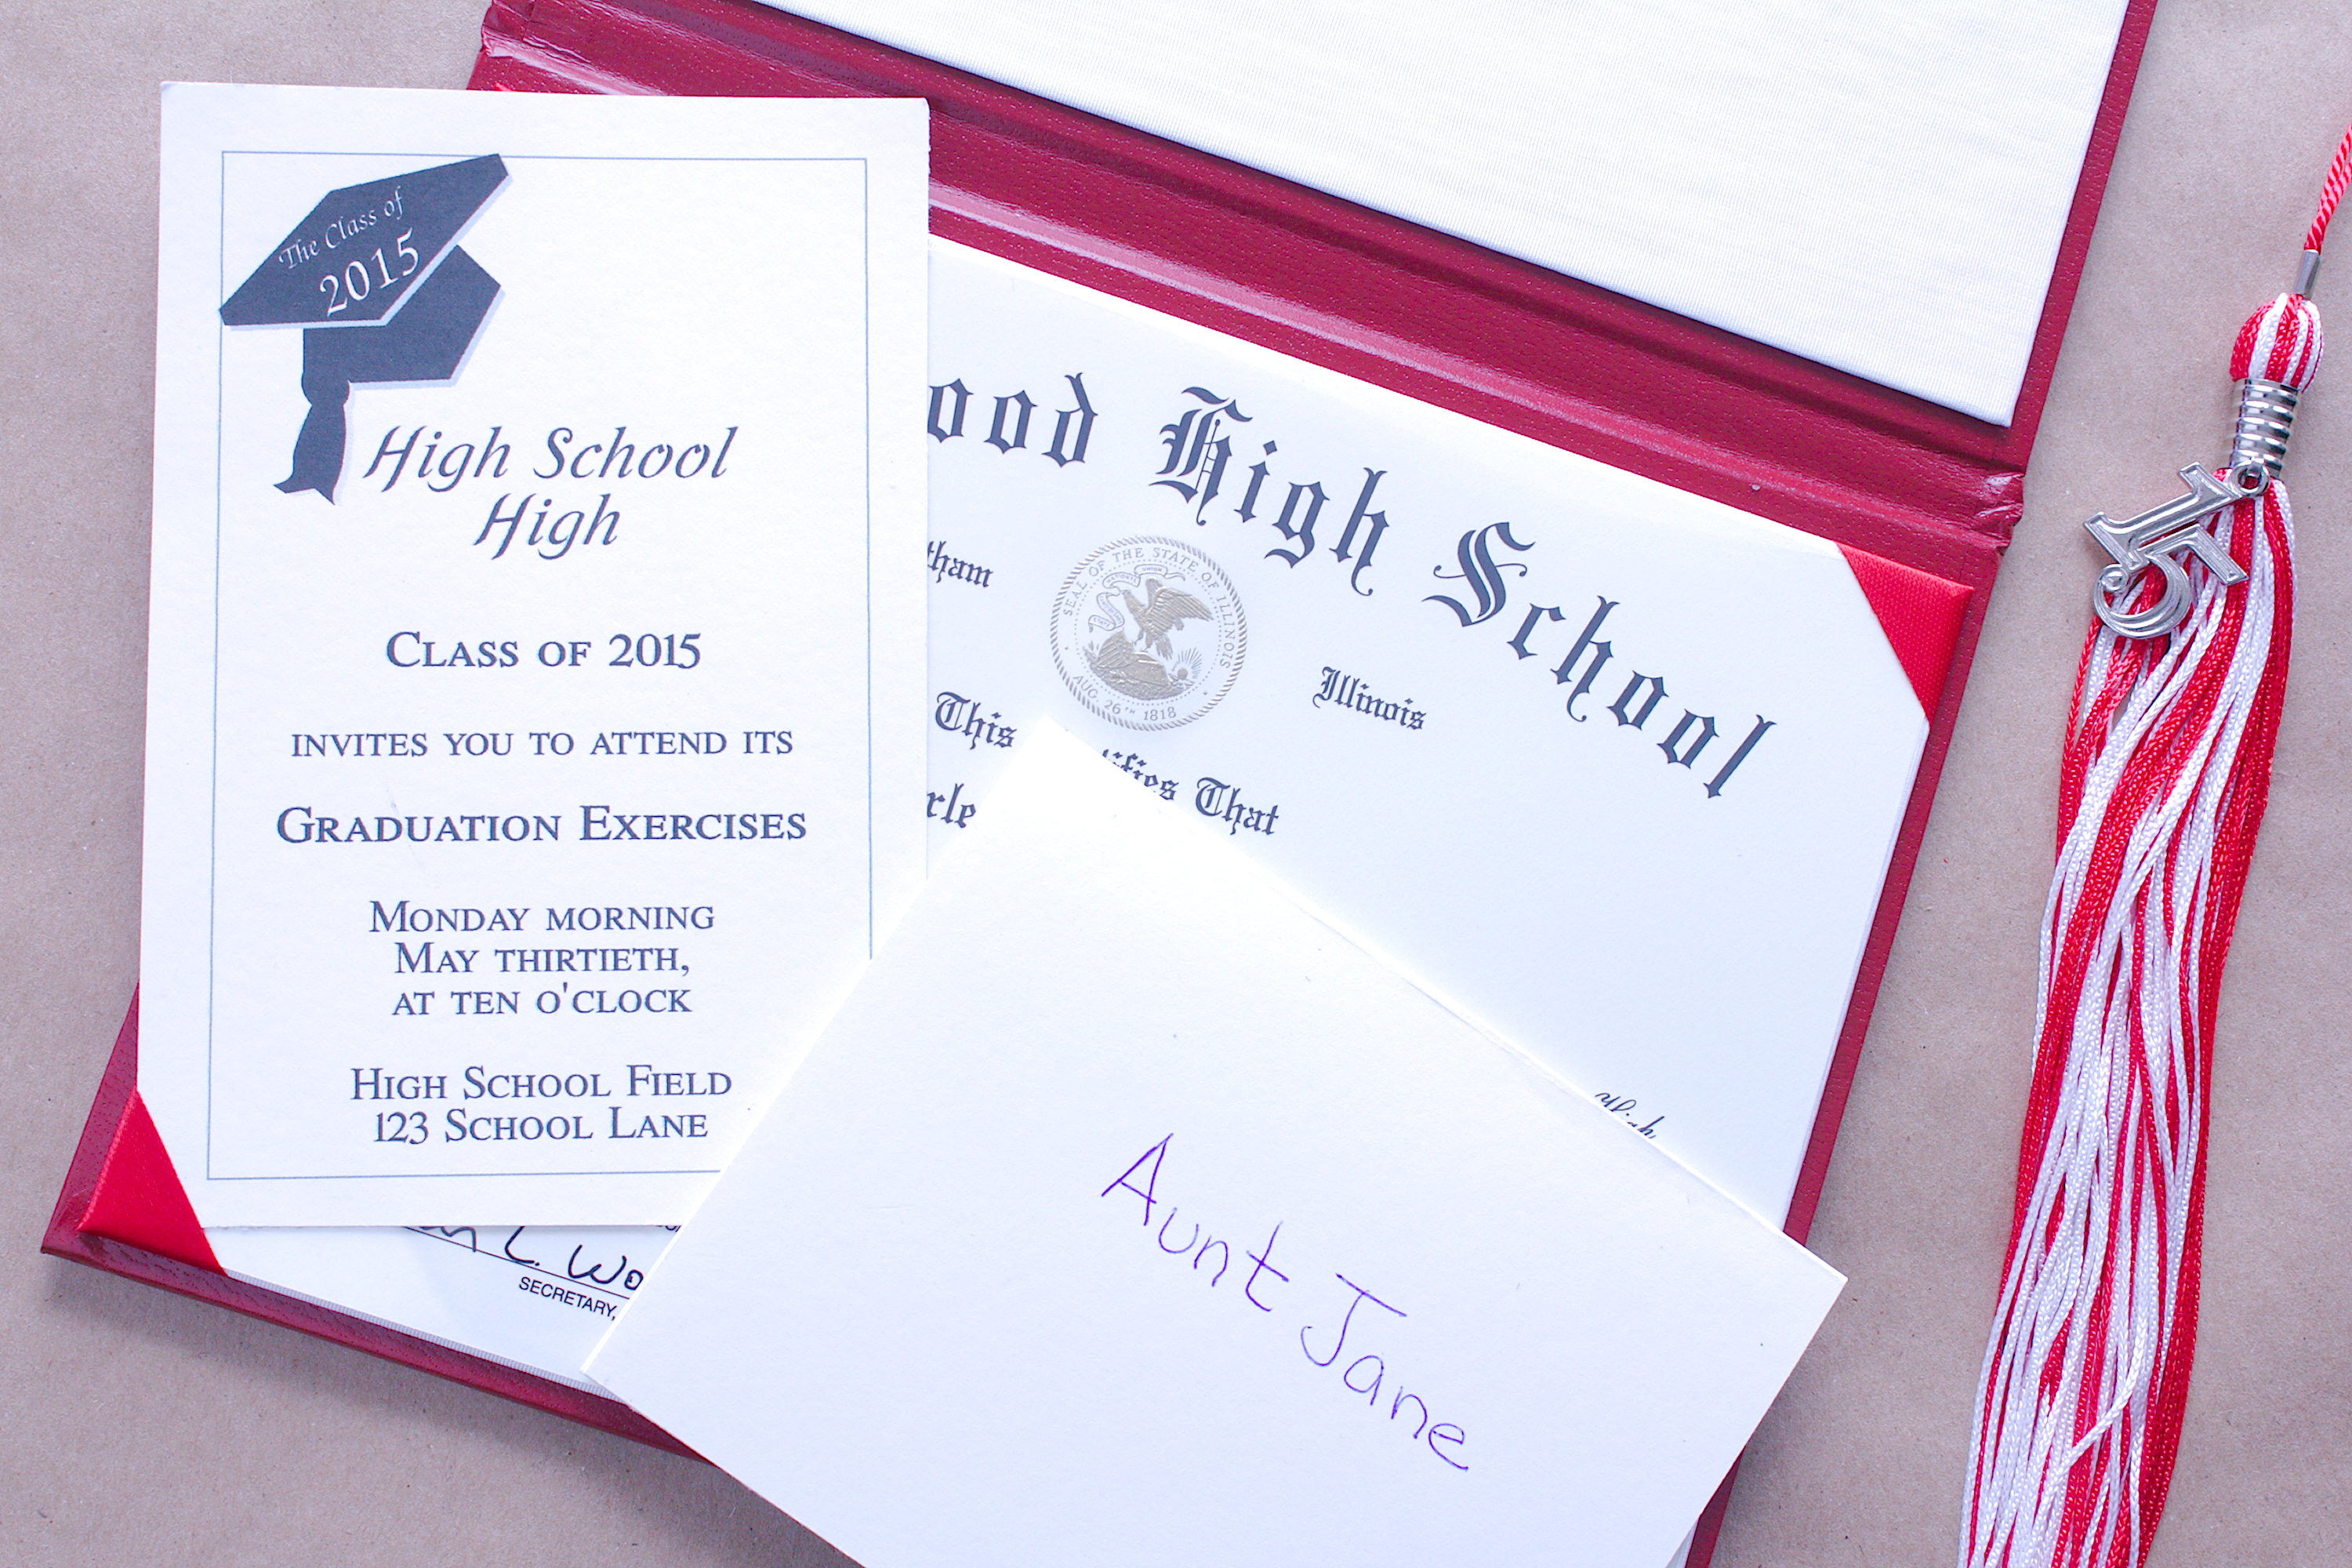 The Class of
2015
High School
High
CLASS OF 2015
INVITES YOU TO ATTEND ITS
GRADUATION EXERCISES
MONDAY MORNING
MAY THIRTIETH,
AT TEN O'CLOCK
HIGH SCHOOL FIELD
123 SCHOOL LANE
ood High School
tham
Illinois
SEAL OF THE STATE OF ILLINOIS
AUG. 26TH 1818
This ifies That
rle
L. Wo
SECRETARY,
Aunt Jane
15